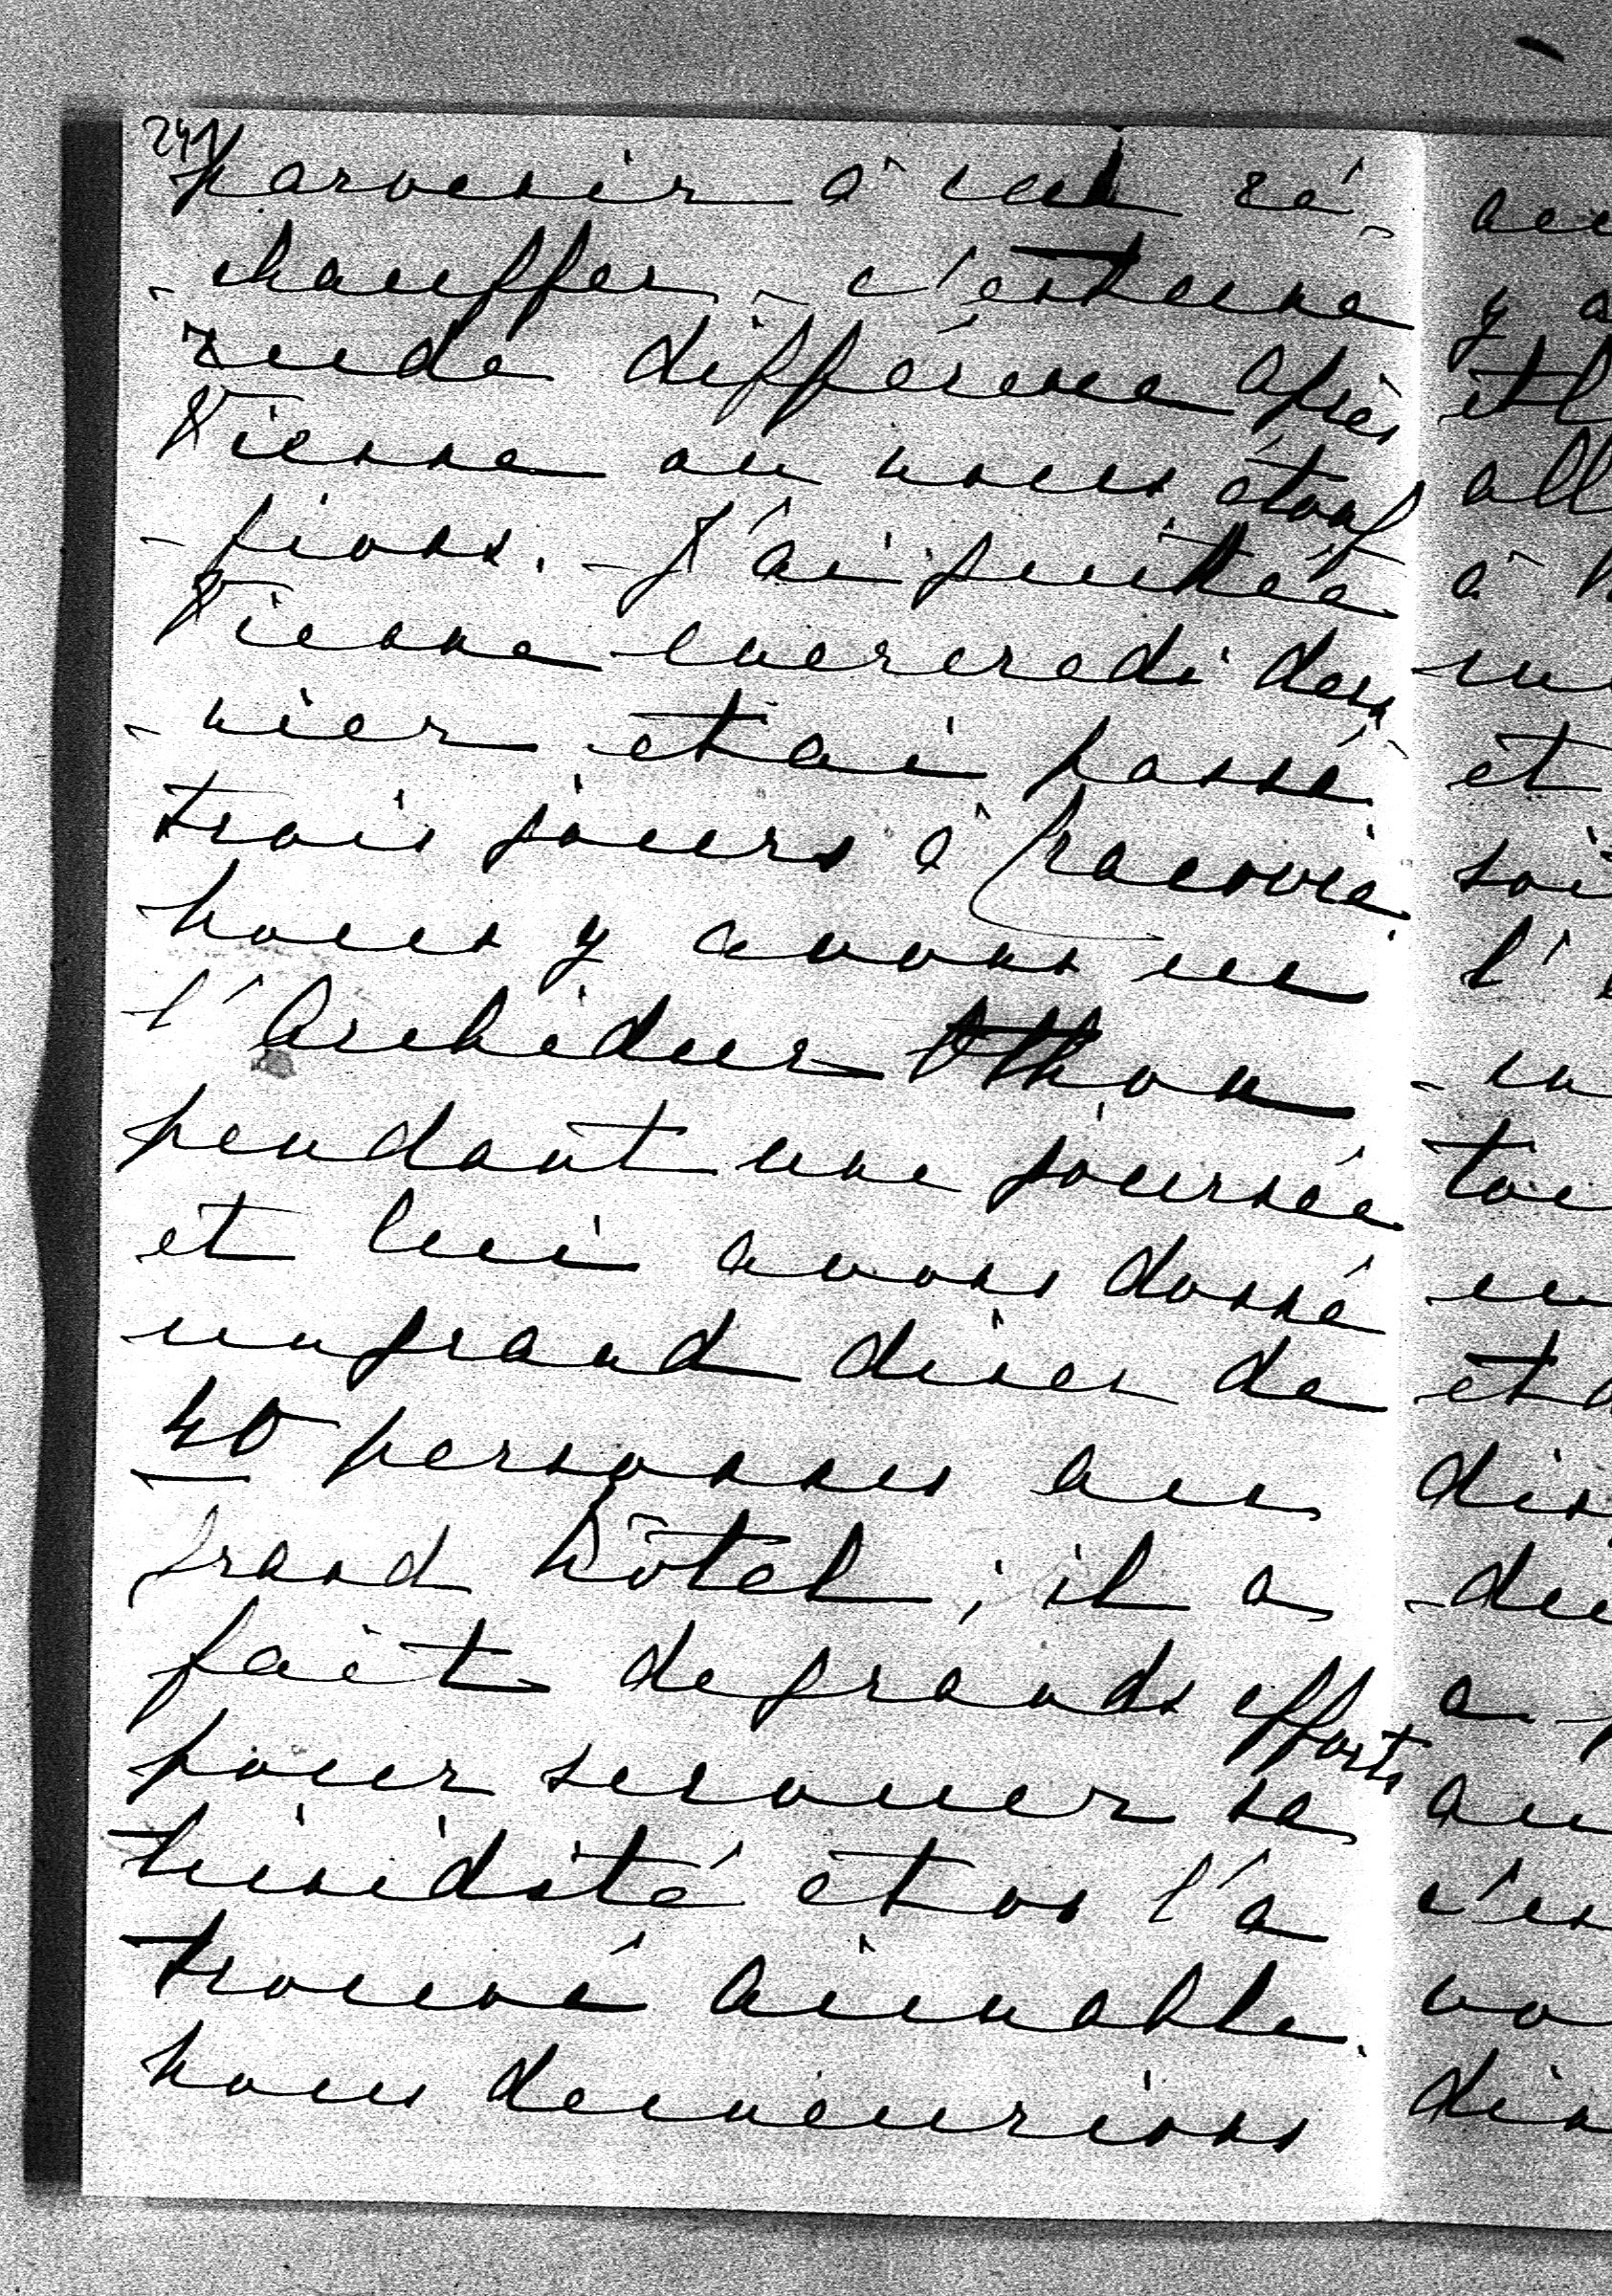 241
parvenir à les ré-
-chauffer, - c'est une
rude différence après
Vienne ou nous étouf
-fions. - J'ai quitté
Vienne mercredi der
-nier et ai passé
trois jours à Cracovie.
nous y avons eu
l'Archiduc Othon
pendant une journée
et lui avons donné
un grand diner de
40 personnes au
grand hôtel; il a
fait de grands efforts
pour secouer sa
timidité et on l'a
trouvé aimable.
nous demeurions